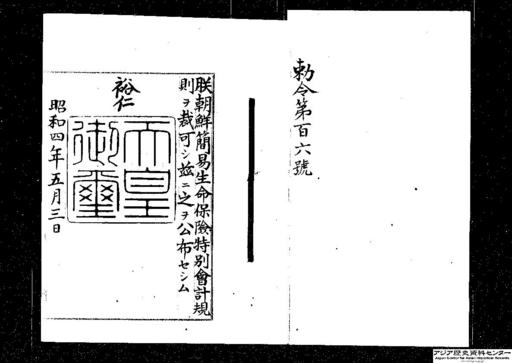 勅令第百六號
朕朝鮮簡易生命保險特別會計規
則ヲ裁可シ茲ニ之ヲ公布セシム
裕仁
天皇
御璽
昭和四年五月三日
アジア歴史資料センター
Japan Center for Asian Historical Records